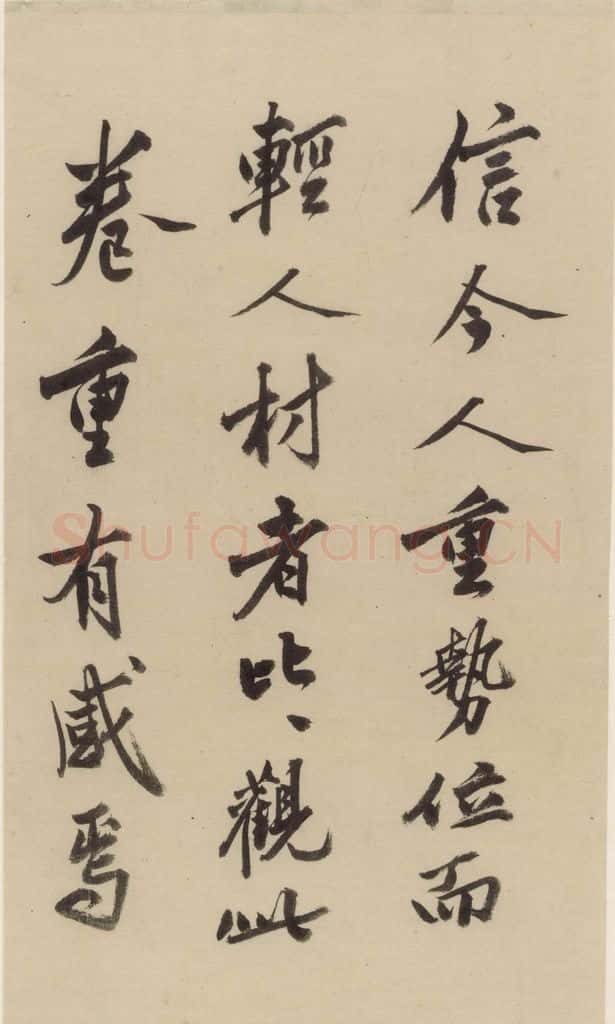 信今人重勢位而
輕人材者比〻觀此
卷重有感焉
ShufaWang.CN